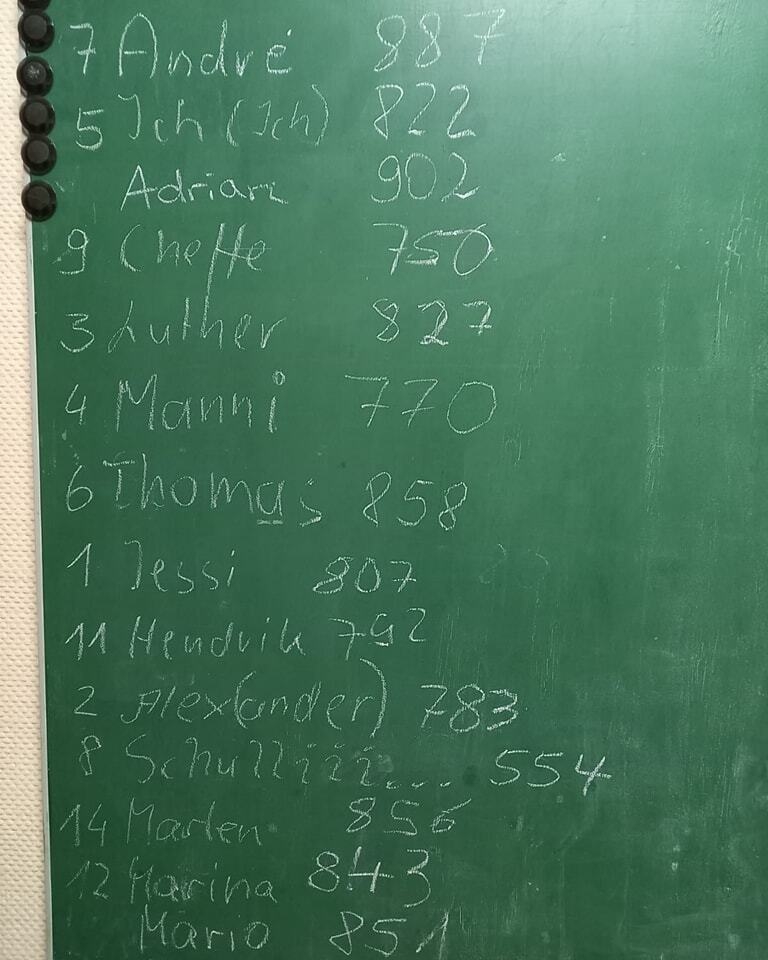 7 André 887
5 Ich (Ich) 822
Adrian 902
9 Cheffe 750
3 Luther 827
4 Manni 770
6 Thomas 858
1 Jessi 807
11 Hendrik 792
2 Alex(ander) 783
8 Schulliii... 554
14 Marlen 856
12 Marina 843
Mario 851